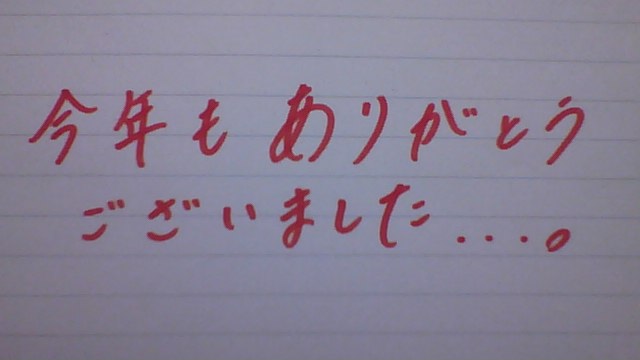 今年も ありがとう
ございました....。